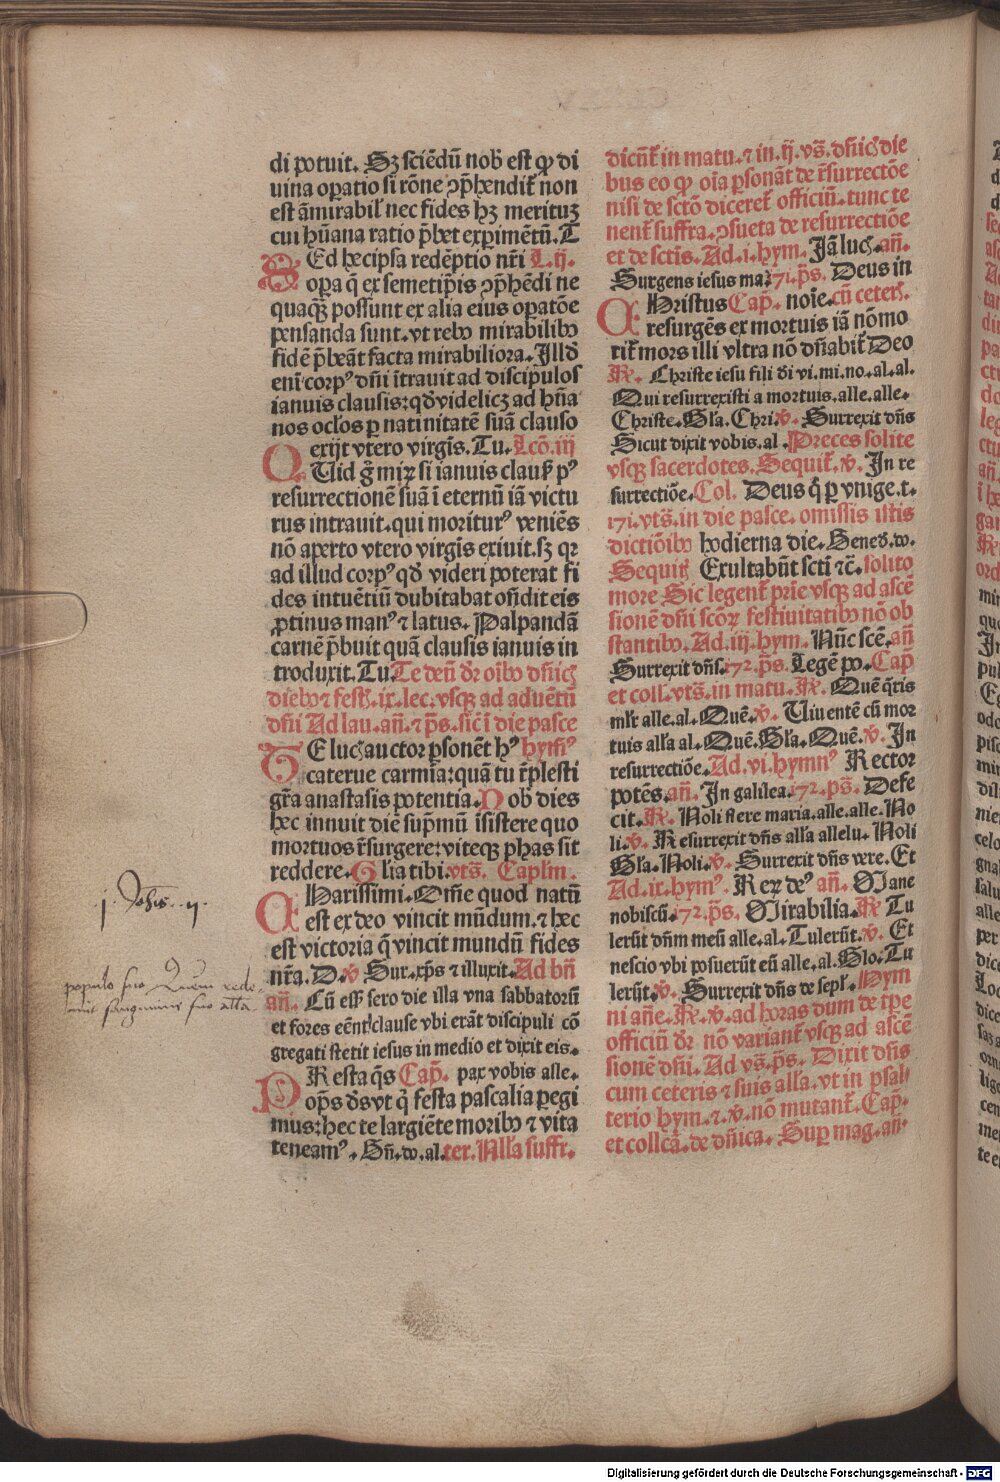 di potuit. Sꝫ sciēdū nob̄ est ꝙ di
uina oꝑatio si rōne ↄp̄hendit̄ non
est āmirabil̕ nec fides hꝫ merituꝫ
cui hūana ratio p̄bet exꝑimētū. T
Ed hec ipsa redēptio nr̄i L. ij.
oꝑa q̄ ex semetip̄is ↄp̄hēdi ne
quaqꝫ possunt ex alia eius oꝑatōe
pensanda sunt. vt rebꝰ mirabilibꝰ
fidē p̄beāt facta mirabiliora. Illd̄
eni corpꝰ dn̄i ītrauit ad discipulos
ianuis clausis: qd̄ videlicꝫ ad hn̄a
nos oclos ꝑ natiuitatē suā clauso
exijt vtero virgīs. Tu. Lcō. iij
Uid g̃ miꝝ si ianuis claus̄ pꝰ
resurrectionē suā ī eternū iā victu
rus intrauit. qui moriturꝰ veniēs
nō aperto vtero virgīs exiuit. sꝫ qꝛ
ad illud corpꝰ qd̄ videri poterat fi
des intuētiū dubitabat on̄dit eis
ꝓtinus manꝰ ⁊ latus. Palpandā
carnē p̄buit quā clausis ianuis in
troduxit. Tu. Te deū dr̄ oībꝰ dn̄icꝭ
diebꝰ ⁊ festꝭ. ix. lec. vsqꝫ ad aduētū
dn̄i Ad lau. an̄. ⁊ p̄s. sic̄ ī die pasce
E lucꝭ auctor ꝑsonēt hꝰ hym̄ꝰ
caterue carmīa: quā tu r̄plesti
gr̄a anastasis potentia. Nob dies
hec innuit diē sup̄mū īsistere quo
mortuos r̄surgere: viteqꝫ phas sit
reddere. Glia tibi. vts̄. Caplm̄.
Harissimi. Om̄e quod natū
est ex deo vincit mūdum. ⁊ hec
est victoria q̄ vincit mundū fides
nr̄a. D. ℣ Sur. xp̄s ⁊ illuxit. Ad bn̄
an̄. Cū ess̄ sero die illa vna sabbatorū
et fores eēnt clause vbi erāt discipuli cō
gregati stetit iesus in medio et dixit eis.
REsta q̄s Cap̄. pax vobis alle.
op̄s ds̄ vt q̄ festa pascalia ꝑegi
mus: hec te largiēte moribꝰ ⁊ vita
teneamꝰ. Ꝑn̄. dꝰ. al. ter. Alla suffr.
i. Johīs. v.
populo suo Quem rede
mit sanguine suo alla
dicūt̄ in matu. ⁊ in. ij. vs̄. dn̄icꝭ die
bus eo ꝙ oīa ꝑsonāt de r̄surrectōe
nisi de sctō diceret̄ officiū. tunc te
nent̄ suffra. ↄsueta de resurrectiōe
et de sctīs. Ad. i. hym. Jā lucꝭ. an̄.
Surgens iesus ma2 71. p̄s. Deus in
Hristus Cap̄. noīe. cū ceterꝭ.
resurgēs ex mortuis iā nō mo
rit̄ mors illi vltra nō dn̄abit̄ Deo
℟. Christe iesu fili di vi. mi. no. al. al.
Qui resurrexisti a mortuis. alle. alle.
Christe. Gl̄a. Chri ℣. Surrexit dn̄s
Sicut dixit vobis. al. Preces solite
vsqꝫ sacerdotes. Sequit̄. ℣. In re
surrectiōe. Col. Deus q̄ ꝑ vnige. t.
171. vts̄. in die pasce. omissis istis
dictiōibꝰ hodierna die. Bened. dꝰ.
Sequit̄ Exultabūt sctī ⁊c̄. solito
more Sic legent̄ prīe vsqꝫ ad ascē
sionē dn̄i scōꝝ festiuitatibꝰ nō ob
stantibꝰ. Ad. iij. hym. Nūc scē. an̄
Surrexit dn̄s. 172. p̄s. Legē po. Cap̄
et coll. vts̄. in matu. ℟. Quē q̄ris
ml̕r alle. al. Quē. ℣. Uiuentē cū mor
tuis all̄a al. Quē. Gl̄a. Quē. ℣. In
resurrectiōe. Ad. vi. hymnꝰ Rector
potēs. an̄. In galilea. 172. p̄s. Defe
cit. ℟. Noli flere maria. alle. alle. No
li. ℣. Resurrexit dn̄s all̄a allelu. Noli
Gl̄a. Noli. ℣. Surrexit dn̄s vere. Et
Ad. ix. hymꝰ. Reꝝ deꝰ an̄. Mane
nobiscū. 172. p̄s. Mirabilia. ℟ Tu
lerūt dn̄m meū alle. al. Tulerūt. ℣. Et
nescio vbi posuerūt eū alle. al. Glo. Tu
lerūt. ℣. Surrexit dn̄s de sepl̕. Hym
ni an̄e. ℟. ℣. ad horas dum de tꝑe
officiū dr̄ nō variant̄ vsqꝫ ad ascē
sionē dn̄i. Ad vs̄. p̄s. Dixit dn̄s
cum ceteris ⁊ suis all̄a. vt in psal
terio hym. ⁊. ℣. nō mutant̄. Cap̄.
et collcā. de dn̄ica. Suꝑ mag. an̄.
Digitalisierung gefördert durch die Deutsche Forschungsgemeinschaft - DFG